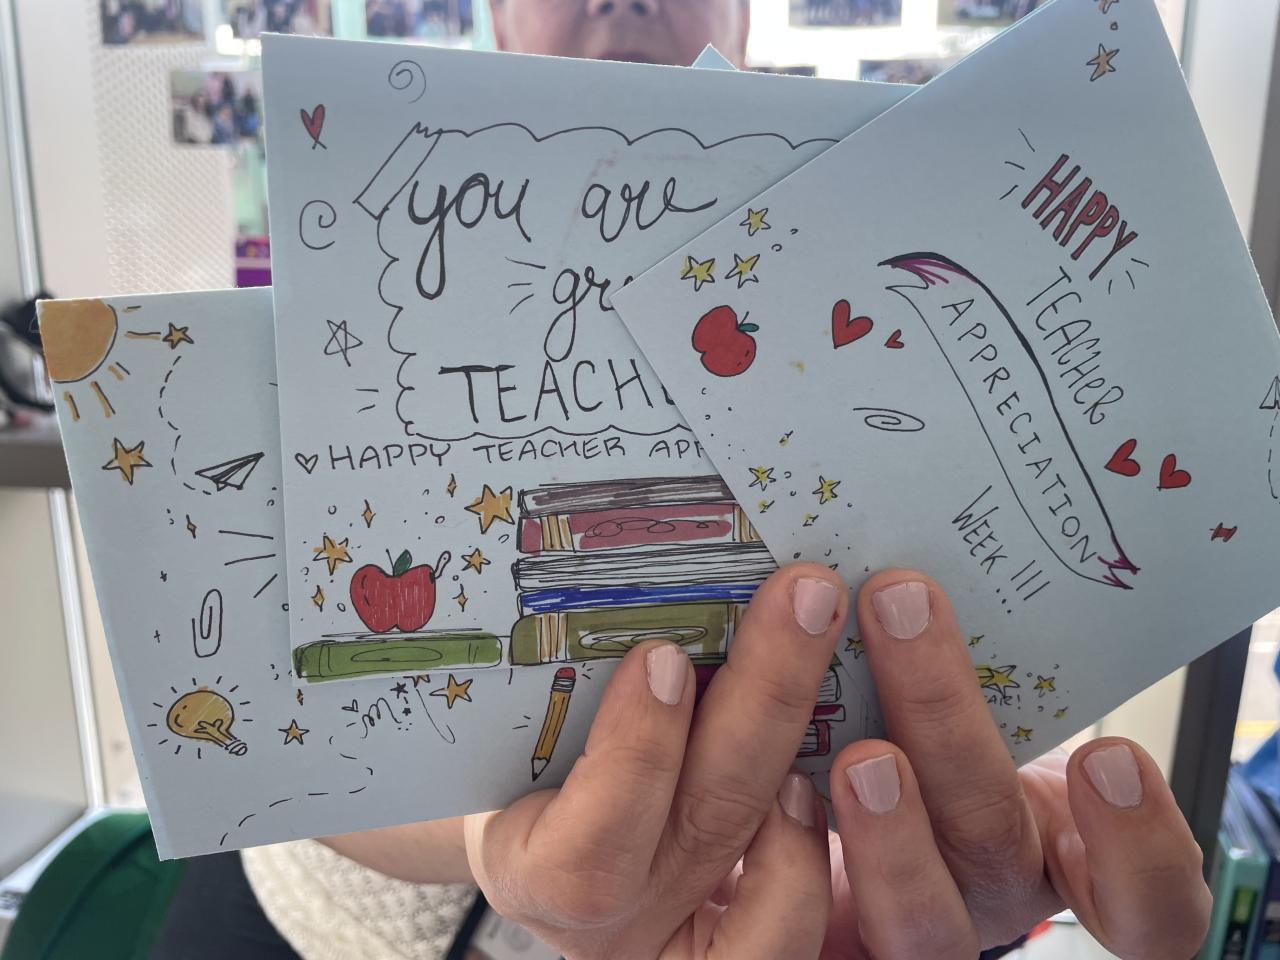 you are
TEACH
HAPPY TEACHER APP
HAPPY
TEACHER
APPRECIATION
WEEK !!!